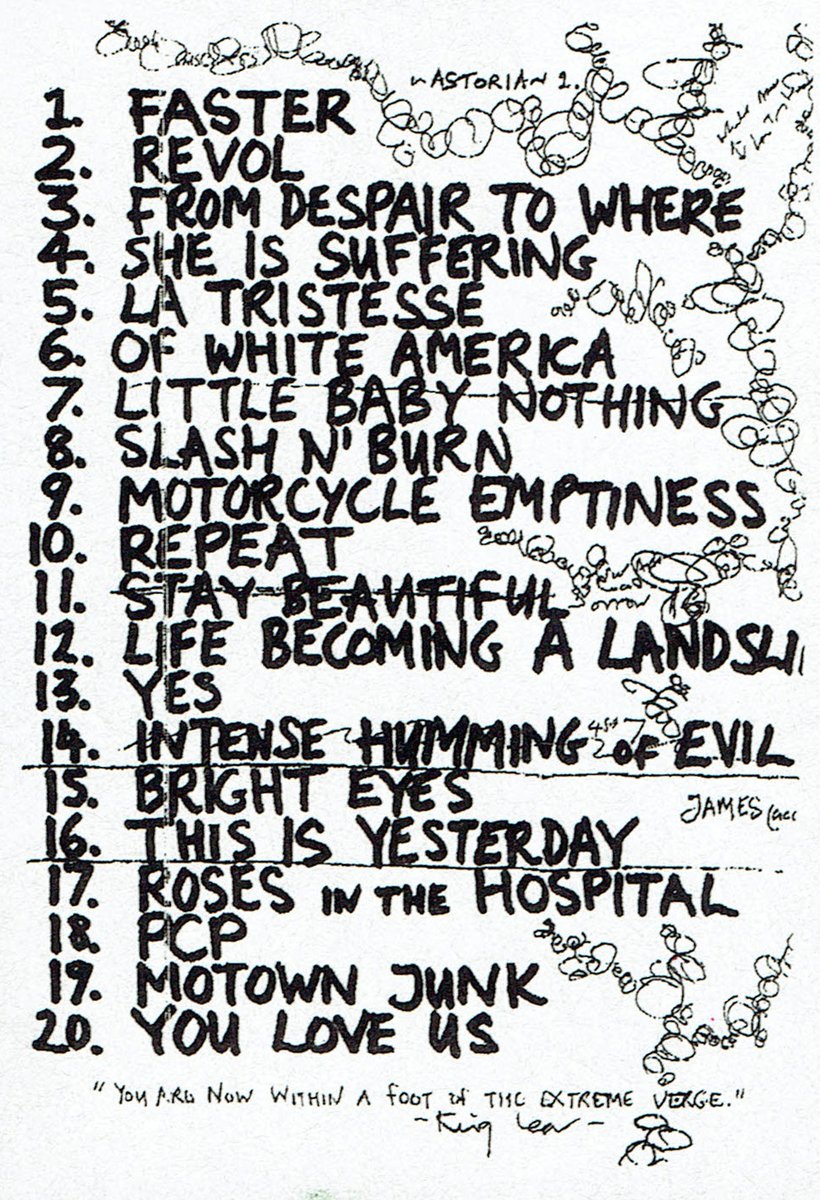 ASTORIAN 2.
1. FASTER
2. REVOL
3. FROM DESPAIR TO WHERE
4. SHE IS SUFFERING
5. LA TRISTESSE
6. OF WHITE AMERICA
7. LITTLE BABY NOTHING
8. SLASH N' BURN
9. MOTORCYCLE EMPTINESS
10. REPEAT
11. STAY BEAUTIFUL
12. LIFE BECOMING A LANDSLI
13. YES
14. INTENSE HUMMING OF EVIL
15. BRIGHT EYES
JAMES
16. THIS IS YESTERDAY
17. ROSES IN THE HOSPITAL
18. PCP
19. MOTOWN JUNK
20. YOU LOVE US
"YOU ARE NOW WITHIN A FOOT OF THE EXTREME VERGE."
- King Lear -